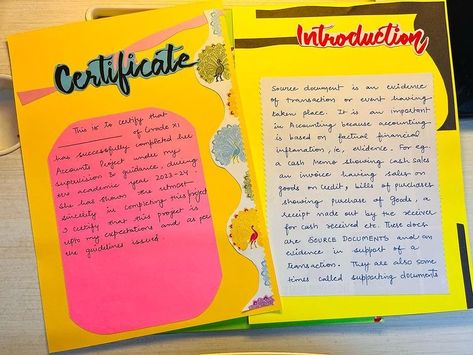 Certificate
This is to certify that
of Grade XI
has successfully completed her
Accounts Project under my
supervision & guidance, during
the academic year 2023-24.
She has shown the utmost
sincerity in completing this project
I certify that this project is
upto my expectations and as per
the guidelines issued.
Introduction
Source document is an evidence
of transaction or event having
taken place. It is an important
in Accounting because accounting
is based on factual financial
inflamation, ie, evidence. For eg.
a Cash Memo showing cash sales
an invoice having sales on
goods on credit, bills of purchases
showing purchase of Goods, a
receipt made out by the receiver
for cash received etc. These docs
are SOURCE DOCUMENTS and an
evidence in support of a
transaction. They are also some
times called supporting documents